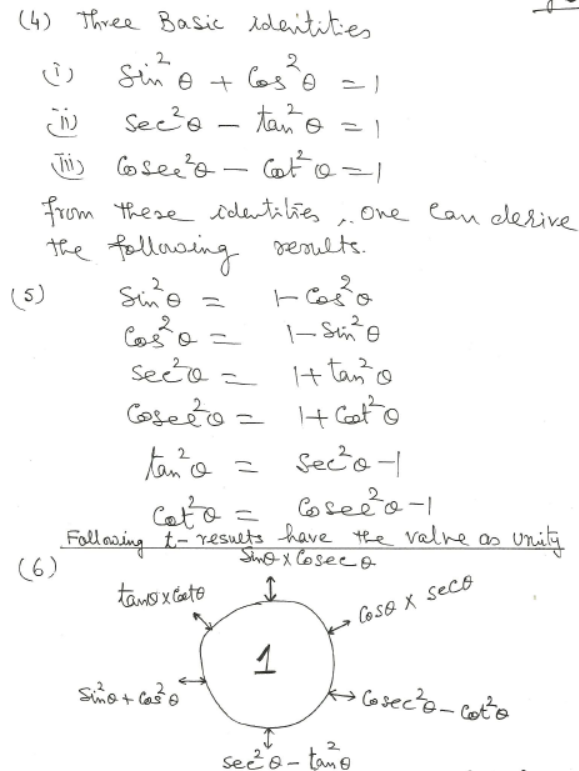 (4) Three Basic identities
(i) Sin²θ + Cos²θ = 1
(ii) sec²θ – tan²θ = 1
(iii) Cosec²θ – Cot²θ = 1
from these identities, one can derive
the following results.
(5) Sin²θ = 1 – Cos²θ
Cos²θ = 1 – Sin²θ
sec²θ = 1 + tan²θ
Cosec²θ = 1 + Cot²θ
tan²θ = sec²θ – 1
Cot²θ = Cosec²θ – 1
Following t-results have the value as unity
(6) Sinθ × Cosecθ
tanθ × Cotθ
Cosθ × secθ
1
Sin²θ + Cos²θ
Cosec²θ – Cot²θ
sec²θ – tan²θ